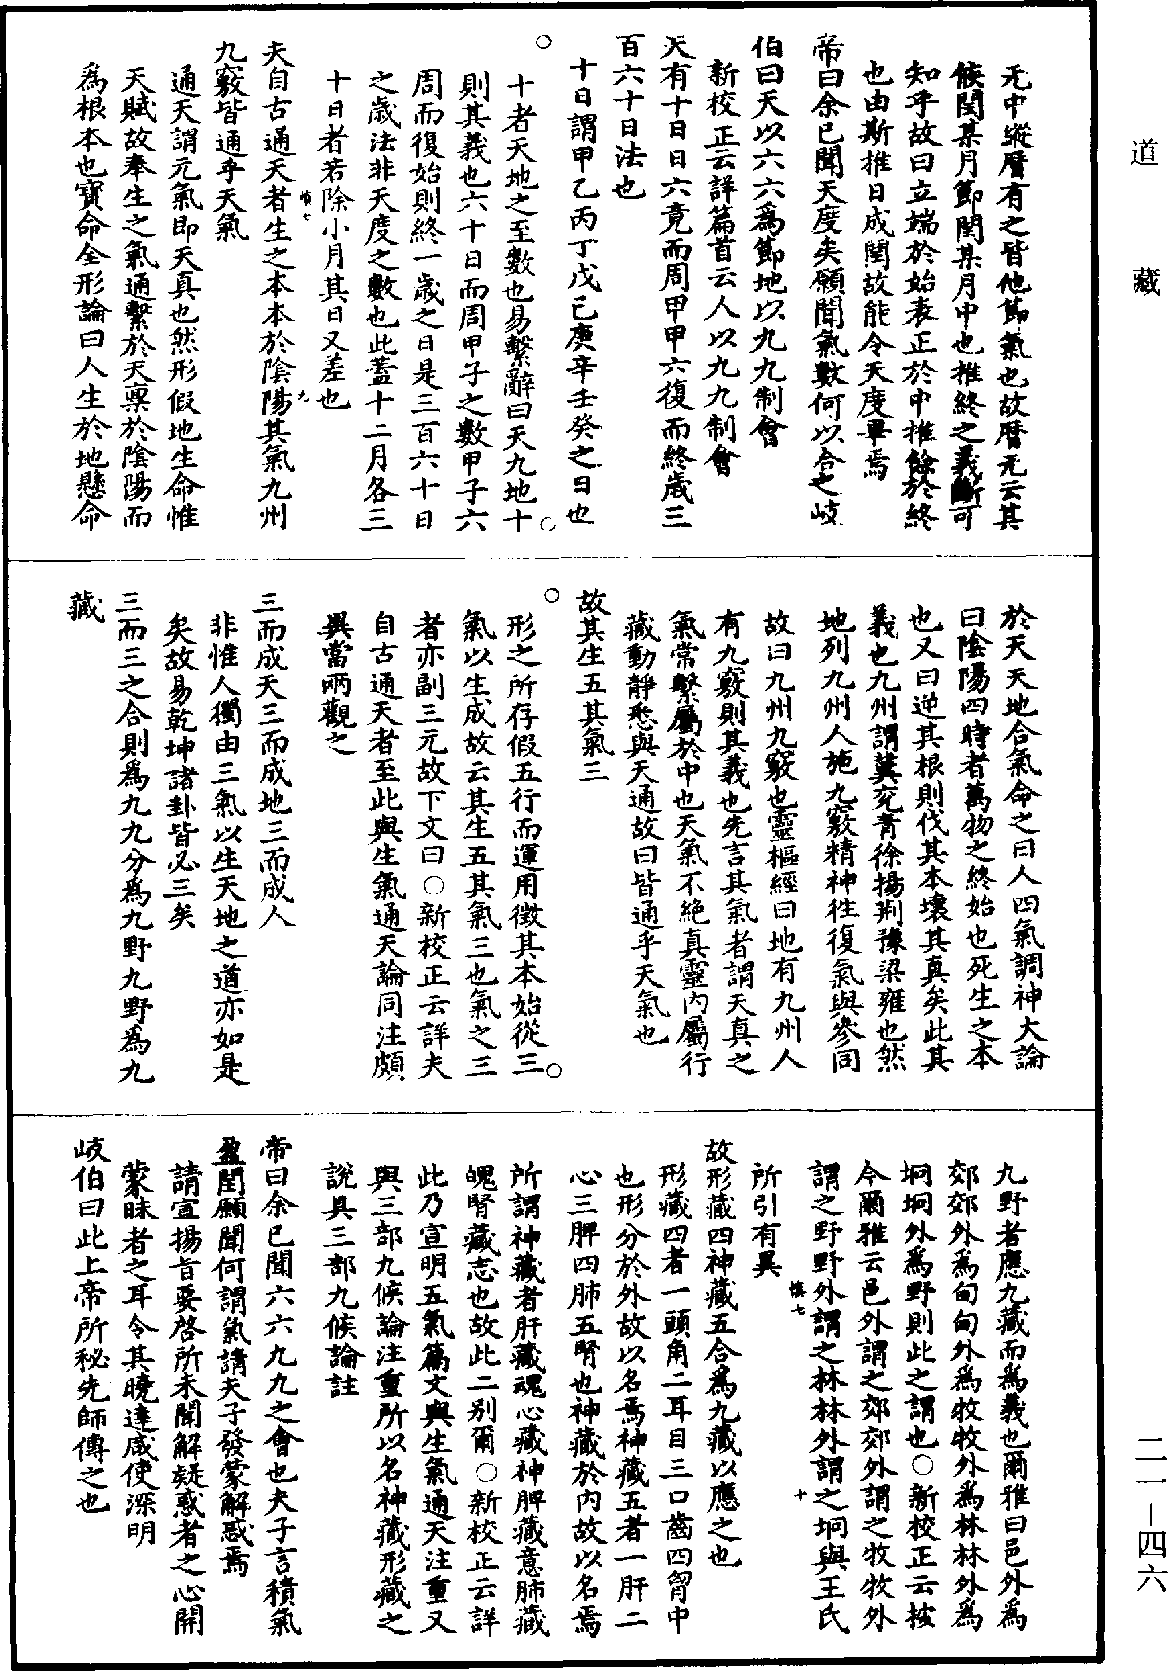 道藏
无中縱曆有之皆他節氣也故曆无云其
候閏某月節閏某月中也推終之義斷可
知乎故曰立端於始表正於中推餘於終
也由斯推日成閏故能令天度畢焉
帝曰余已聞天度矣願聞氣數何以合之岐
伯曰天以六六爲節地以九九制會
新校正云詳篇首云人以九九制會
天有十日日六竟而周甲甲六復而終歲三
百六十日法也
十日謂甲乙丙丁戊己庚辛壬癸之日也
十者天地之至數也易繫辭曰天九地十
則其義也六十日而周甲子之數甲子六
周而復始則終一歲之日是三百六十日
之歲法非天度之數也此蓋十二月各三
十日者若除小月其日又差也
慎七
九
夫自古通天者生之本本於陰陽其氣九州
九竅皆通乎天氣
通天謂元氣即天真也然形假地生命惟
天賦故奉生之氣通繫於天稟於陰陽而
爲根本也寶命全形論曰人生於地懸命
於天天地合氣命之曰人四氣調神大論
曰陰陽四時者萬物之終始也死生之本
也又曰逆其根則伐其本壞其真矣此其
義也九州謂冀兗青徐揚荆豫梁雍也然
地列九州人施九竅精神往復氣與參同
故曰九州九竅也靈樞經曰地有九州人
有九竅則其義也先言其氣者謂天真之
氣常繫屬於中也天氣不絕真靈內屬行
藏動靜悉與天通故曰皆通乎天氣也
故其生五其氣三
形之所存假五行而運用徵其本始從三
氣以生成故云其生五其氣三也氣之三
者亦副三元故下文曰○新校正云詳夫
自古通天者至此與生氣通天論同注頗
異當兩觀之
三而成天三而成地三而成人
非惟人獨由三氣以生天地之道亦如是
矣故易乾坤諸卦皆必三矣
三而三之合則爲九九分爲九野九野爲九
藏
九野者應九藏而爲義也爾雅曰邑外爲
郊郊外爲甸甸外爲牧牧外爲林林外爲
坰坰外爲野則此之謂也○新校正云按
今爾雅云邑外謂之郊郊外謂之牧牧外
謂之野野外謂之林林外謂之坰與王氏
所引有異
慎七
十
故形藏四神藏五合爲九藏以應之也
形藏四者一頭角二耳目三口齒四胷中
也形分於外故以名焉神藏五者一肝二
心三脾四肺五腎也神藏於內故以名焉
所謂神藏者肝藏魂心藏神脾藏意肺藏
魄腎藏志也故此二别爾○新校正云詳
此乃宣明五氣篇文與生氣通天注重又
與三部九候論注重所以名神藏形藏之
說具三部九候論註
帝曰余已聞六六九九之會也夫子言積氣
盈閏願聞何謂氣請夫子發蒙解惑焉
請宣揚旨要啓所未聞解疑惑者之心開
蒙昧者之耳令其曉達咸使深明
岐伯曰此上帝所秘先師傳之也
二一—四六